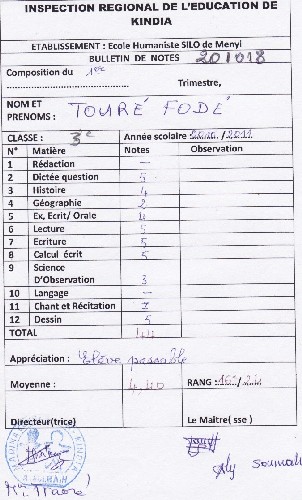 INSPECTION REGIONAL DE L'EDUCATION DE
KINDIA
ETABLISSEMENT : Ecole Humaniste SILO de Menyi
BULLETIN DE NOTES 201018
Composition du 1er
Trimestre,
NOM ET
PRENOMS : TOURÉ FODÉ
CLASSE : 3e Année scolaire 2010/2011
N° Matière Notes Observation
1 Rédaction —
2 Dictée question 5
3 Histoire 4
4 Géographie 2
5 Ex, Ecrit/ Orale 4
6 Lecture 5
7 Ecriture 5
8 Calcul écrit 5
9 Science
D'Observation 3
10 Langage —
11 Chant et Récitation 7
12 Dessin 5
TOTAL 44
Appréciation : Elève passable
Moyenne : 4,40 RANG :
Directeur(trice) Le Maitre( sse )
Aly Soumah
Traore